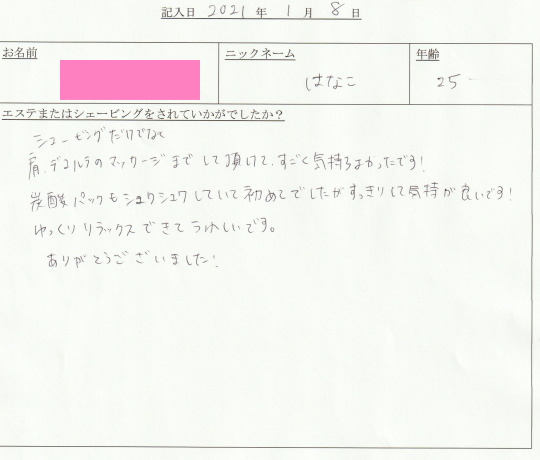 記入日 2021 年 1 月 8 日
お名前 ニックネーム 年齢
はなこ 25
エステまたはシェービングをされていかがでしたか？
シェービングだけでなく
肩、デコルテのマッサージまでして頂けて、すごく気持ちよかったです！
炭酸パックもシュワシュワしていて初めてでしたがすっきりして気持が良いです！
ゆっくりリラックスできてうれしいです。
ありがとうございました！